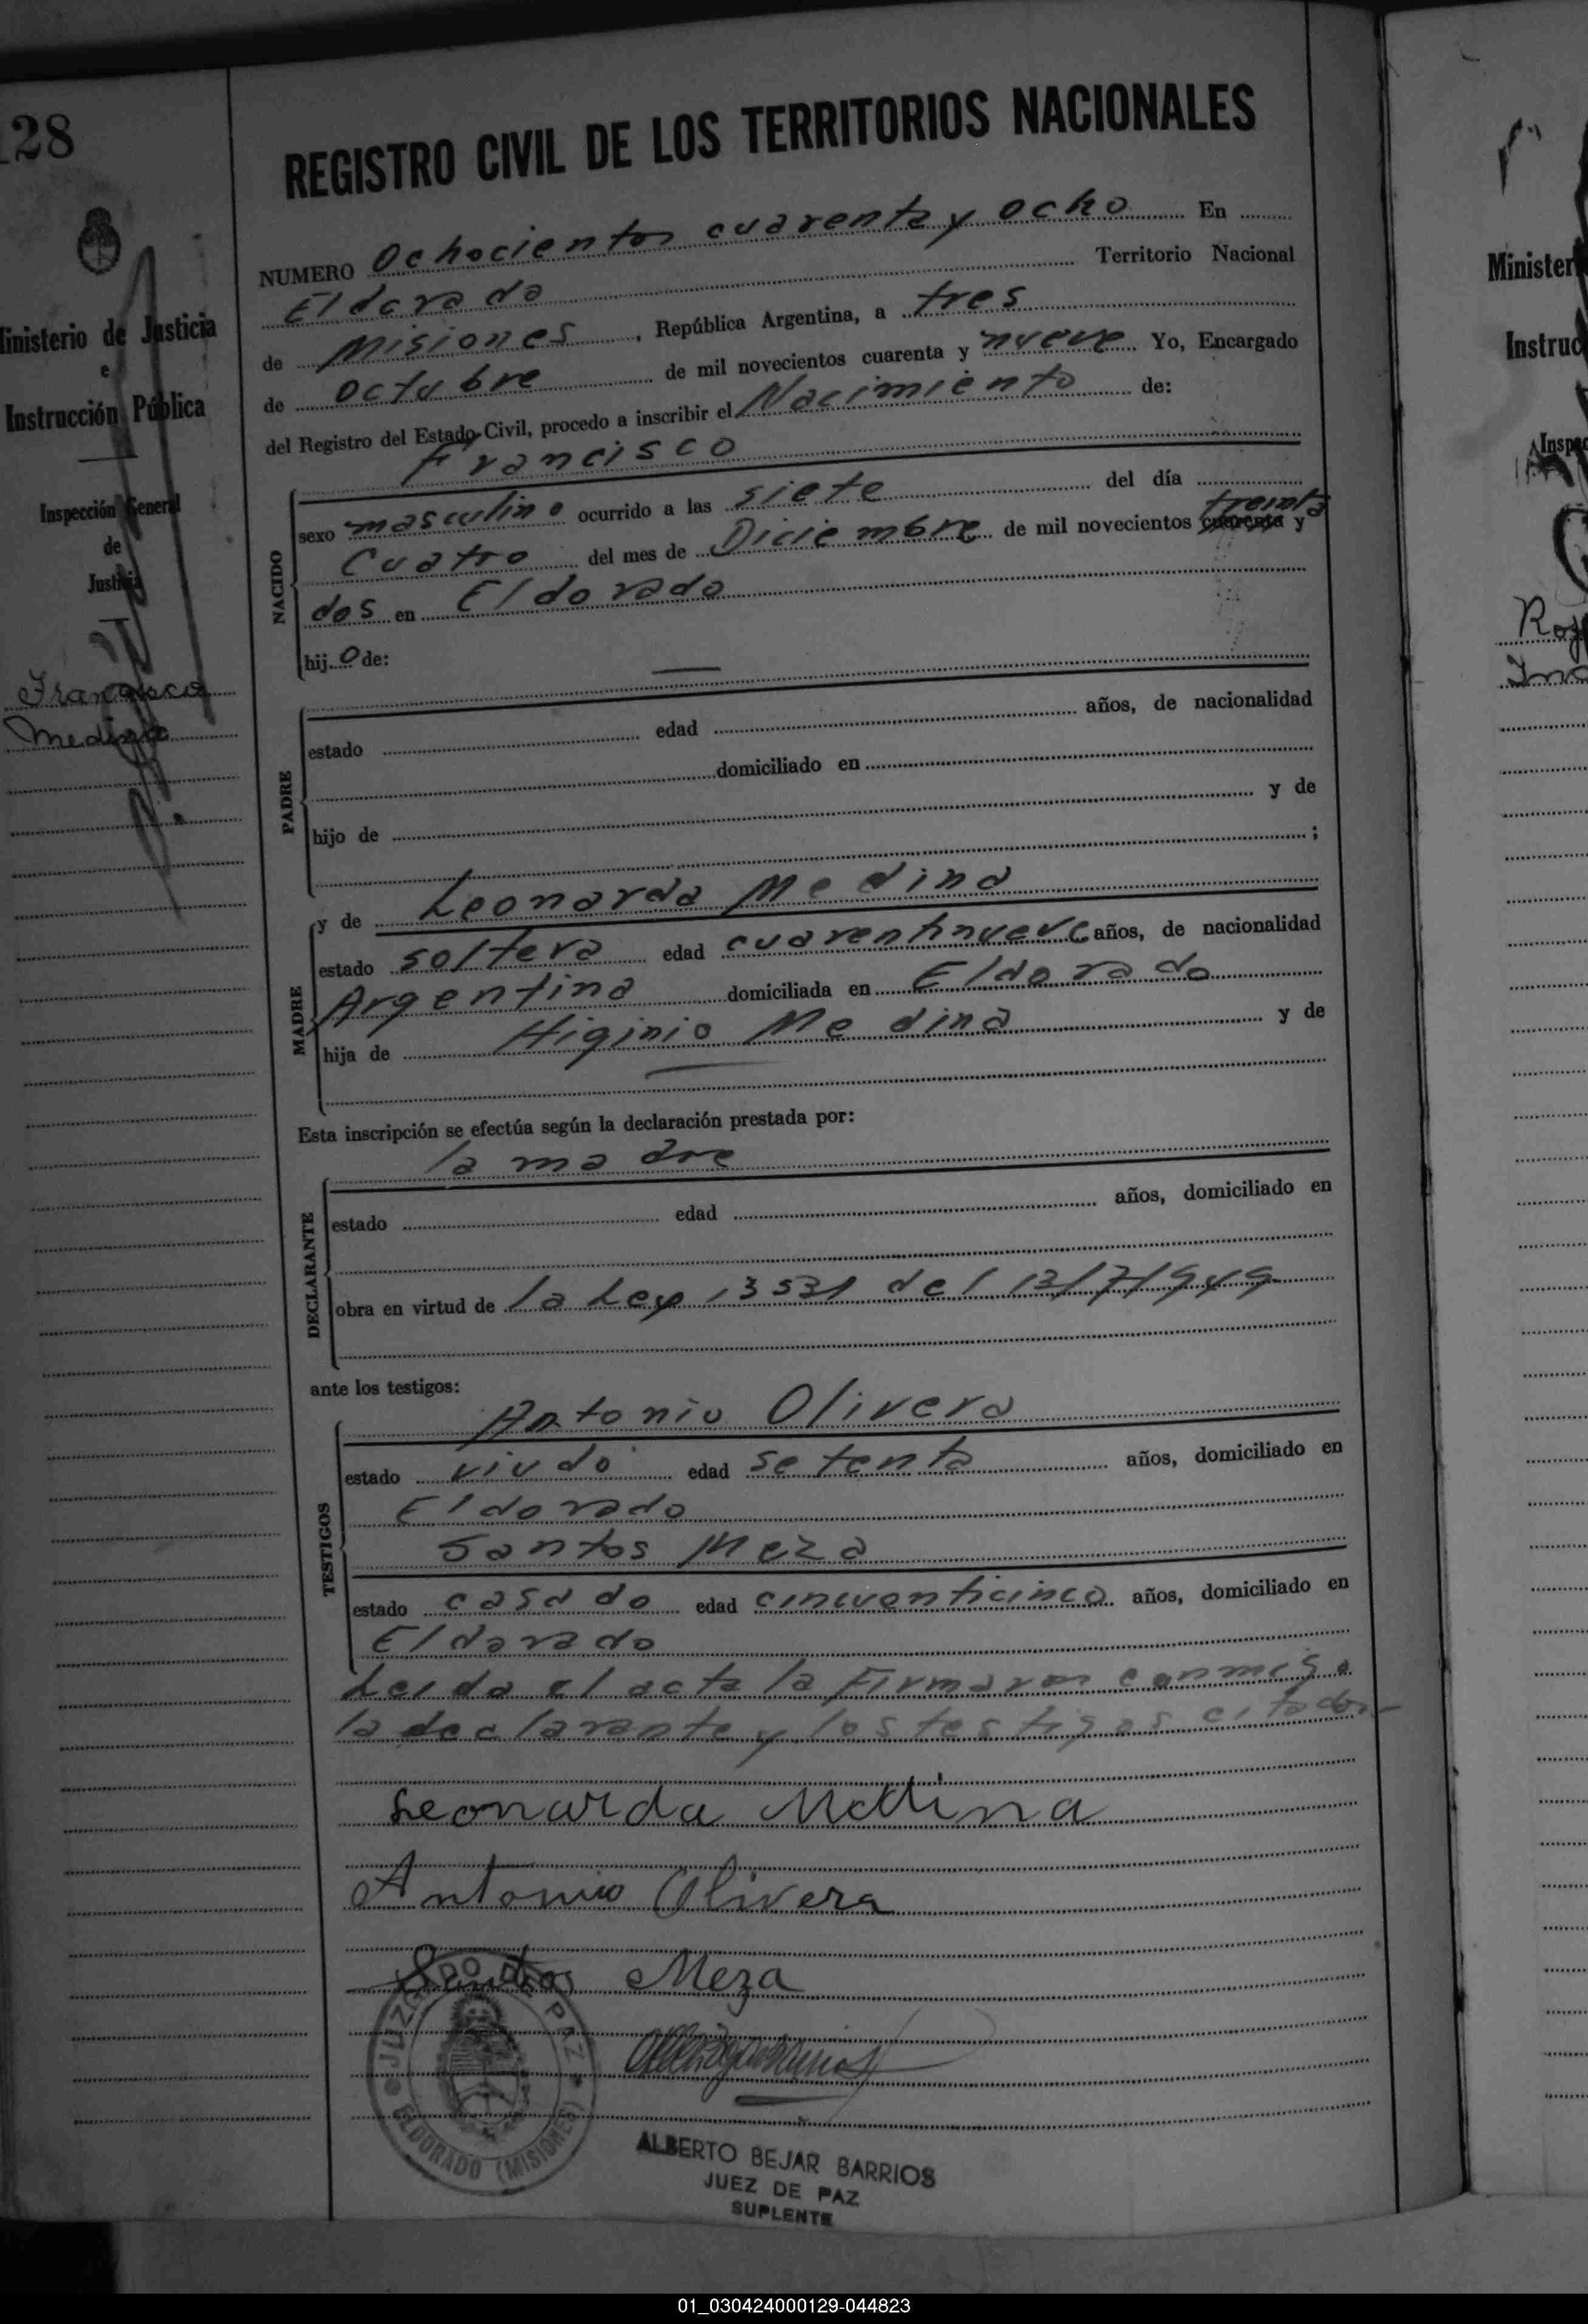 128
REGISTRO CIVIL DE LOS TERRITORIOS NACIONALES
NUMERO Ochocientos cuarenta y ocho En
Eldorado Territorio Nacional
de Misiones, República Argentina, a tres
de octubre de mil novecientos cuarenta y nueve. Yo, Encargado
del Registro del Estado Civil, procedo a inscribir el Nacimiento de:
Francisco
NACIDO
sexo masculino ocurrido a las siete del día
treinta
Cuatro del mes de Diciembre de mil novecientos cuarenta y
dos en Eldorado
hijo de:
PADRE
estado edad años, de nacionalidad
domiciliado en
hijo de y de
;
MADRE
y de Leonarda Medina
estado soltera edad cuarentinueve años, de nacionalidad
Argentina domiciliada en Eldorado
hija de Higinio Medina y de
Esta inscripción se efectúa según la declaración prestada por:
la madre
DECLARANTE
estado edad años, domiciliado en
obra en virtud de la Ley 13531 del 13/7/949
ante los testigos:
Antonio Olivera
TESTIGOS
estado viudo edad setenta años, domiciliado en
Eldorado
Santos Meza
estado casado edad cincuenticinco años, domiciliado en
Eldorado
Leida el acta la Firmaron conmigo
la declarante y los testigos citados-
Leonarda Medina
Antonio Olivera
Santos Meza
JUZGADO DE PAZ
ELDORADO (MISIONES)
ALBERTO BEJAR BARRIOS
JUEZ DE PAZ
SUPLENTE
Ministerio de Justicia
e
Instrucción Pública
Inspección General
de
Justicia
Francisco
Medina
Minister
Instruc
Inspec
01_030424000129-044823